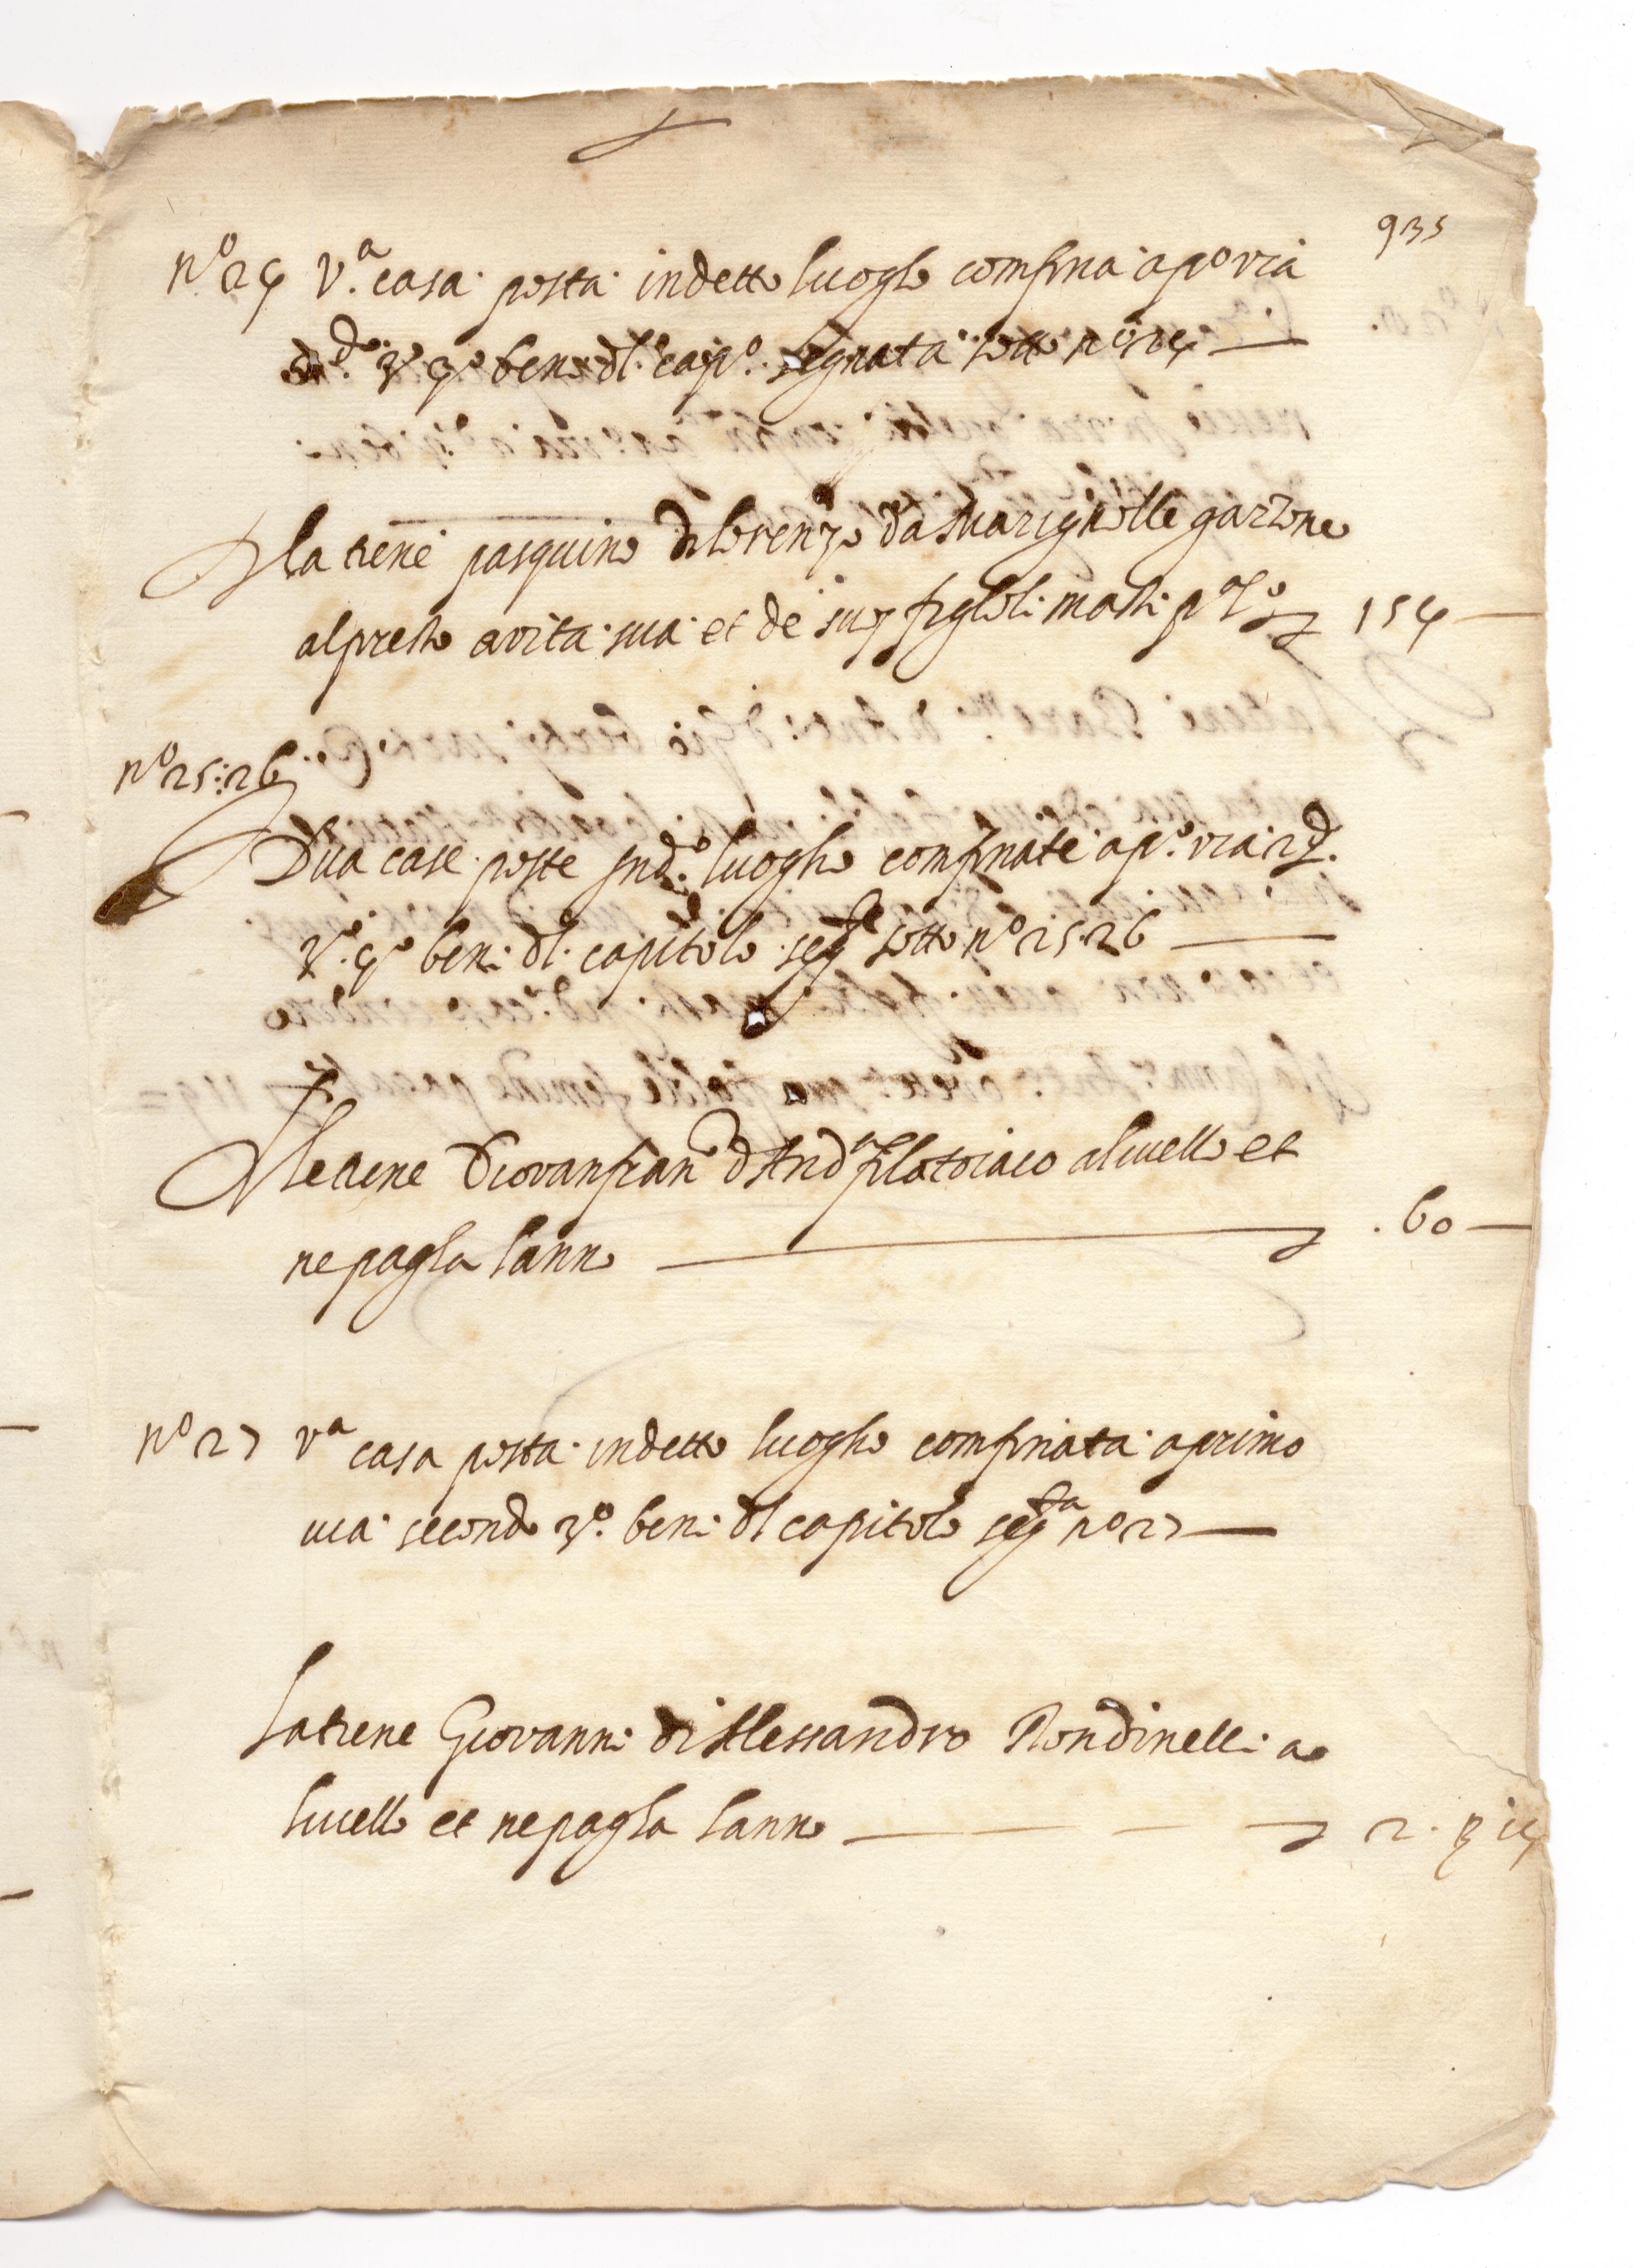 935
n.º 24 v.ª casa posta in detto luogho confina a pº via
3º 4º beni dl. capº. segnata sotto nº 24
la tiene pasquino di lorenzo da Marignolle garzone
al presto a vita sua et de suoj figloli masti 154
nº 25:26
Dua case poste in dº. luogho confinate a pº. via 2º.
3º. 4º beni dl. capitolo segte sotto nº 25.26
le tiene Giovanfranº d Andª filatoiaio a livello et
ne pagha lanno .60
nº 27 vª casa posta in detto luogho confinata a primo
via secondo 3º. beni dl capitolo segta nº 27
la tiene Giovanni di Alessandro Rondinelli a
livello et ne pagha lanno 2.